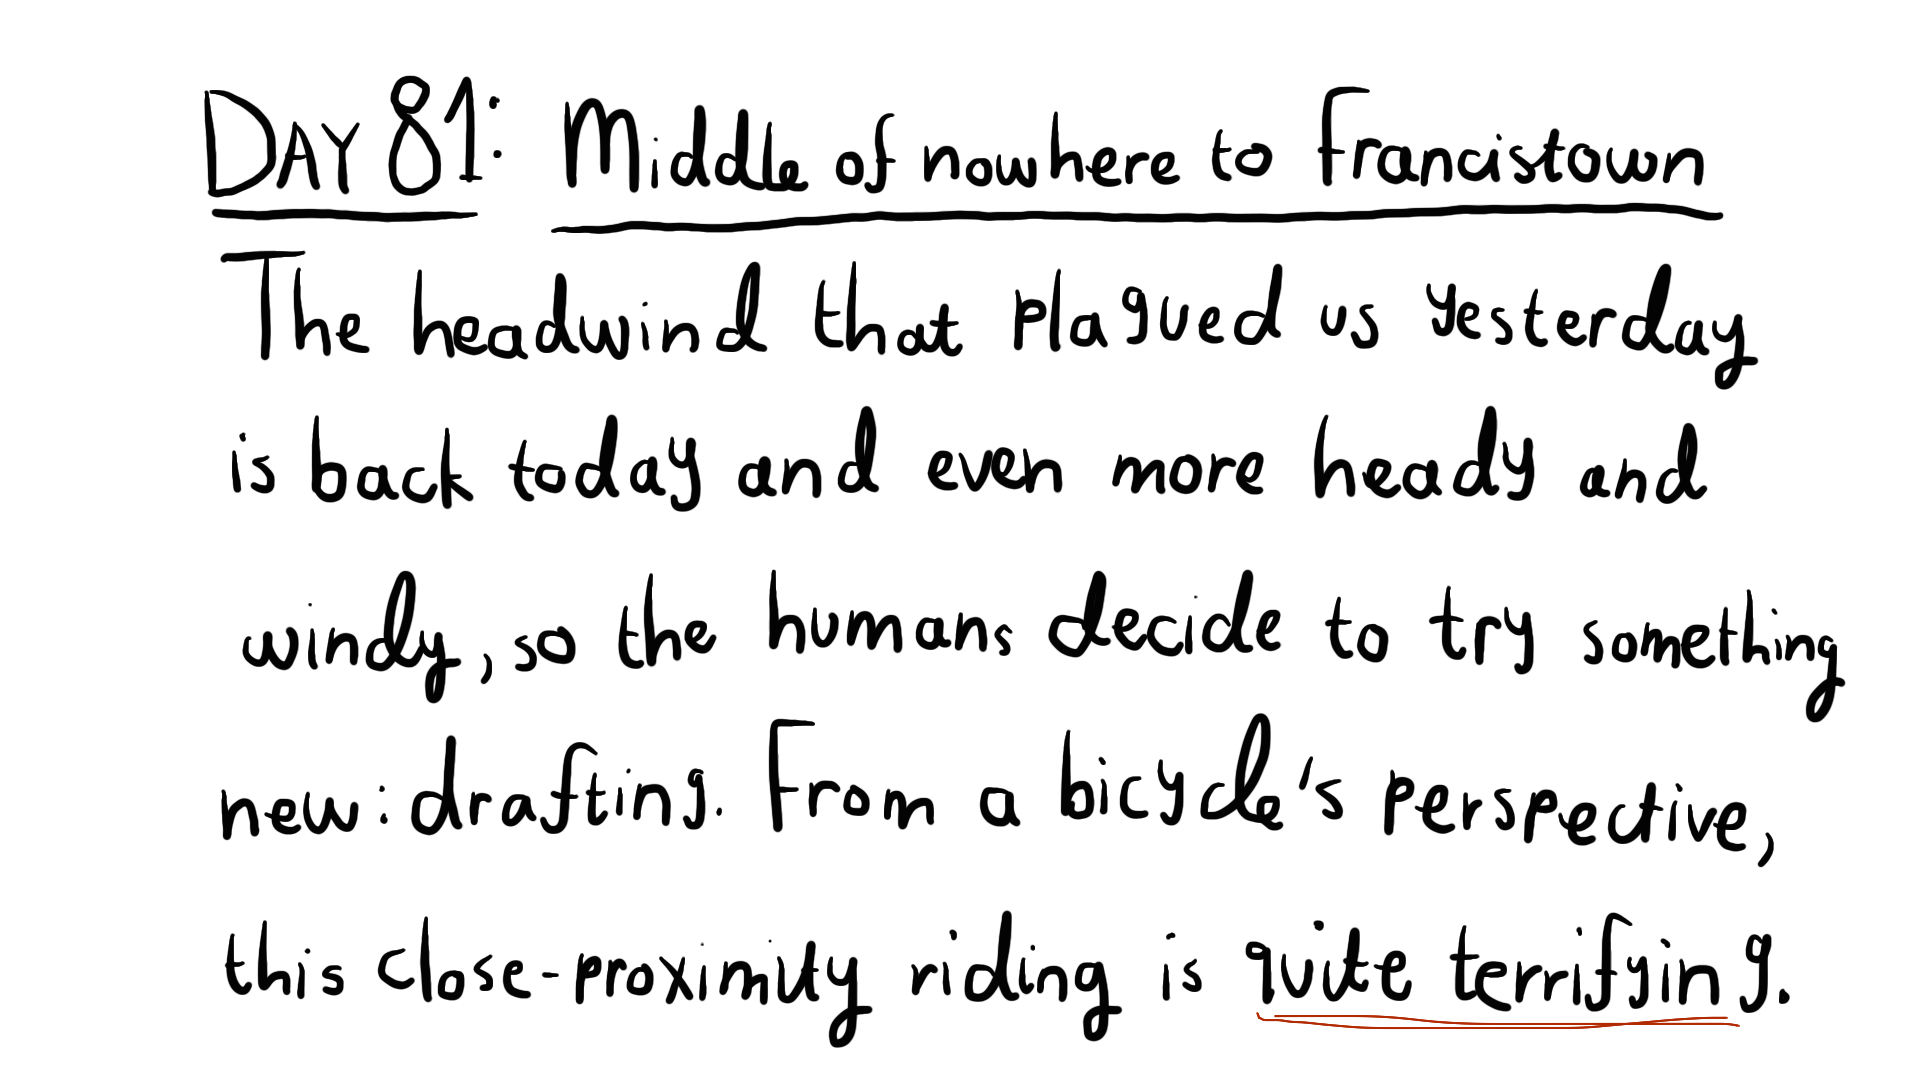 DAY 81: Middle of nowhere to Francistown
The headwind that plagued us yesterday
is back today and even more heady and
windy, so the humans decide to try something
new: drafting. From a bicycle's perspective,
this close-proximity riding is quite terrifying.